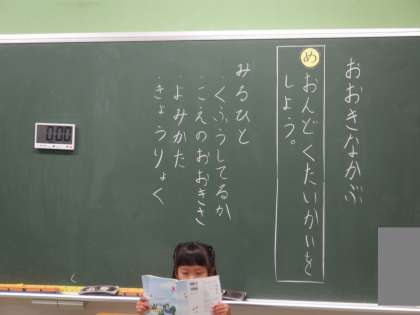 おおきなかぶ
め
おんどくたいかいを
しよう。
みるひと
・くふうしてるか
・こえのおおきさ
・よみかた
・きょうりょく